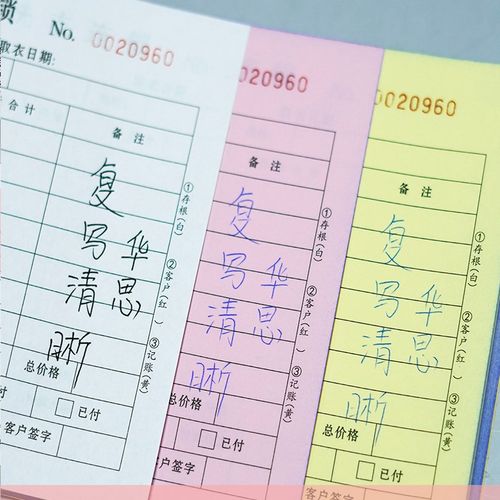 锁
No. 0020960
取衣日期:
合计 备注
复
写 华
清 思
晰
①存根(白)
②客户(红)
③记账(黄)
总价格
已付
客户签字
0020960
备注
复
写 华
清 思
晰
①存根(白)
②客户(红)
③记账(黄)
总价格
已付
客户签字
No.
0020960
备注
复
写 华
清 思
晰
①存根(白)
②客户(红)
③记账(黄)
总价格
已付
客户签字